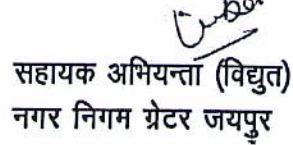 सहायक अभियन्ता (विद्युत)
नगर निगम ग्रेटर जयपुर